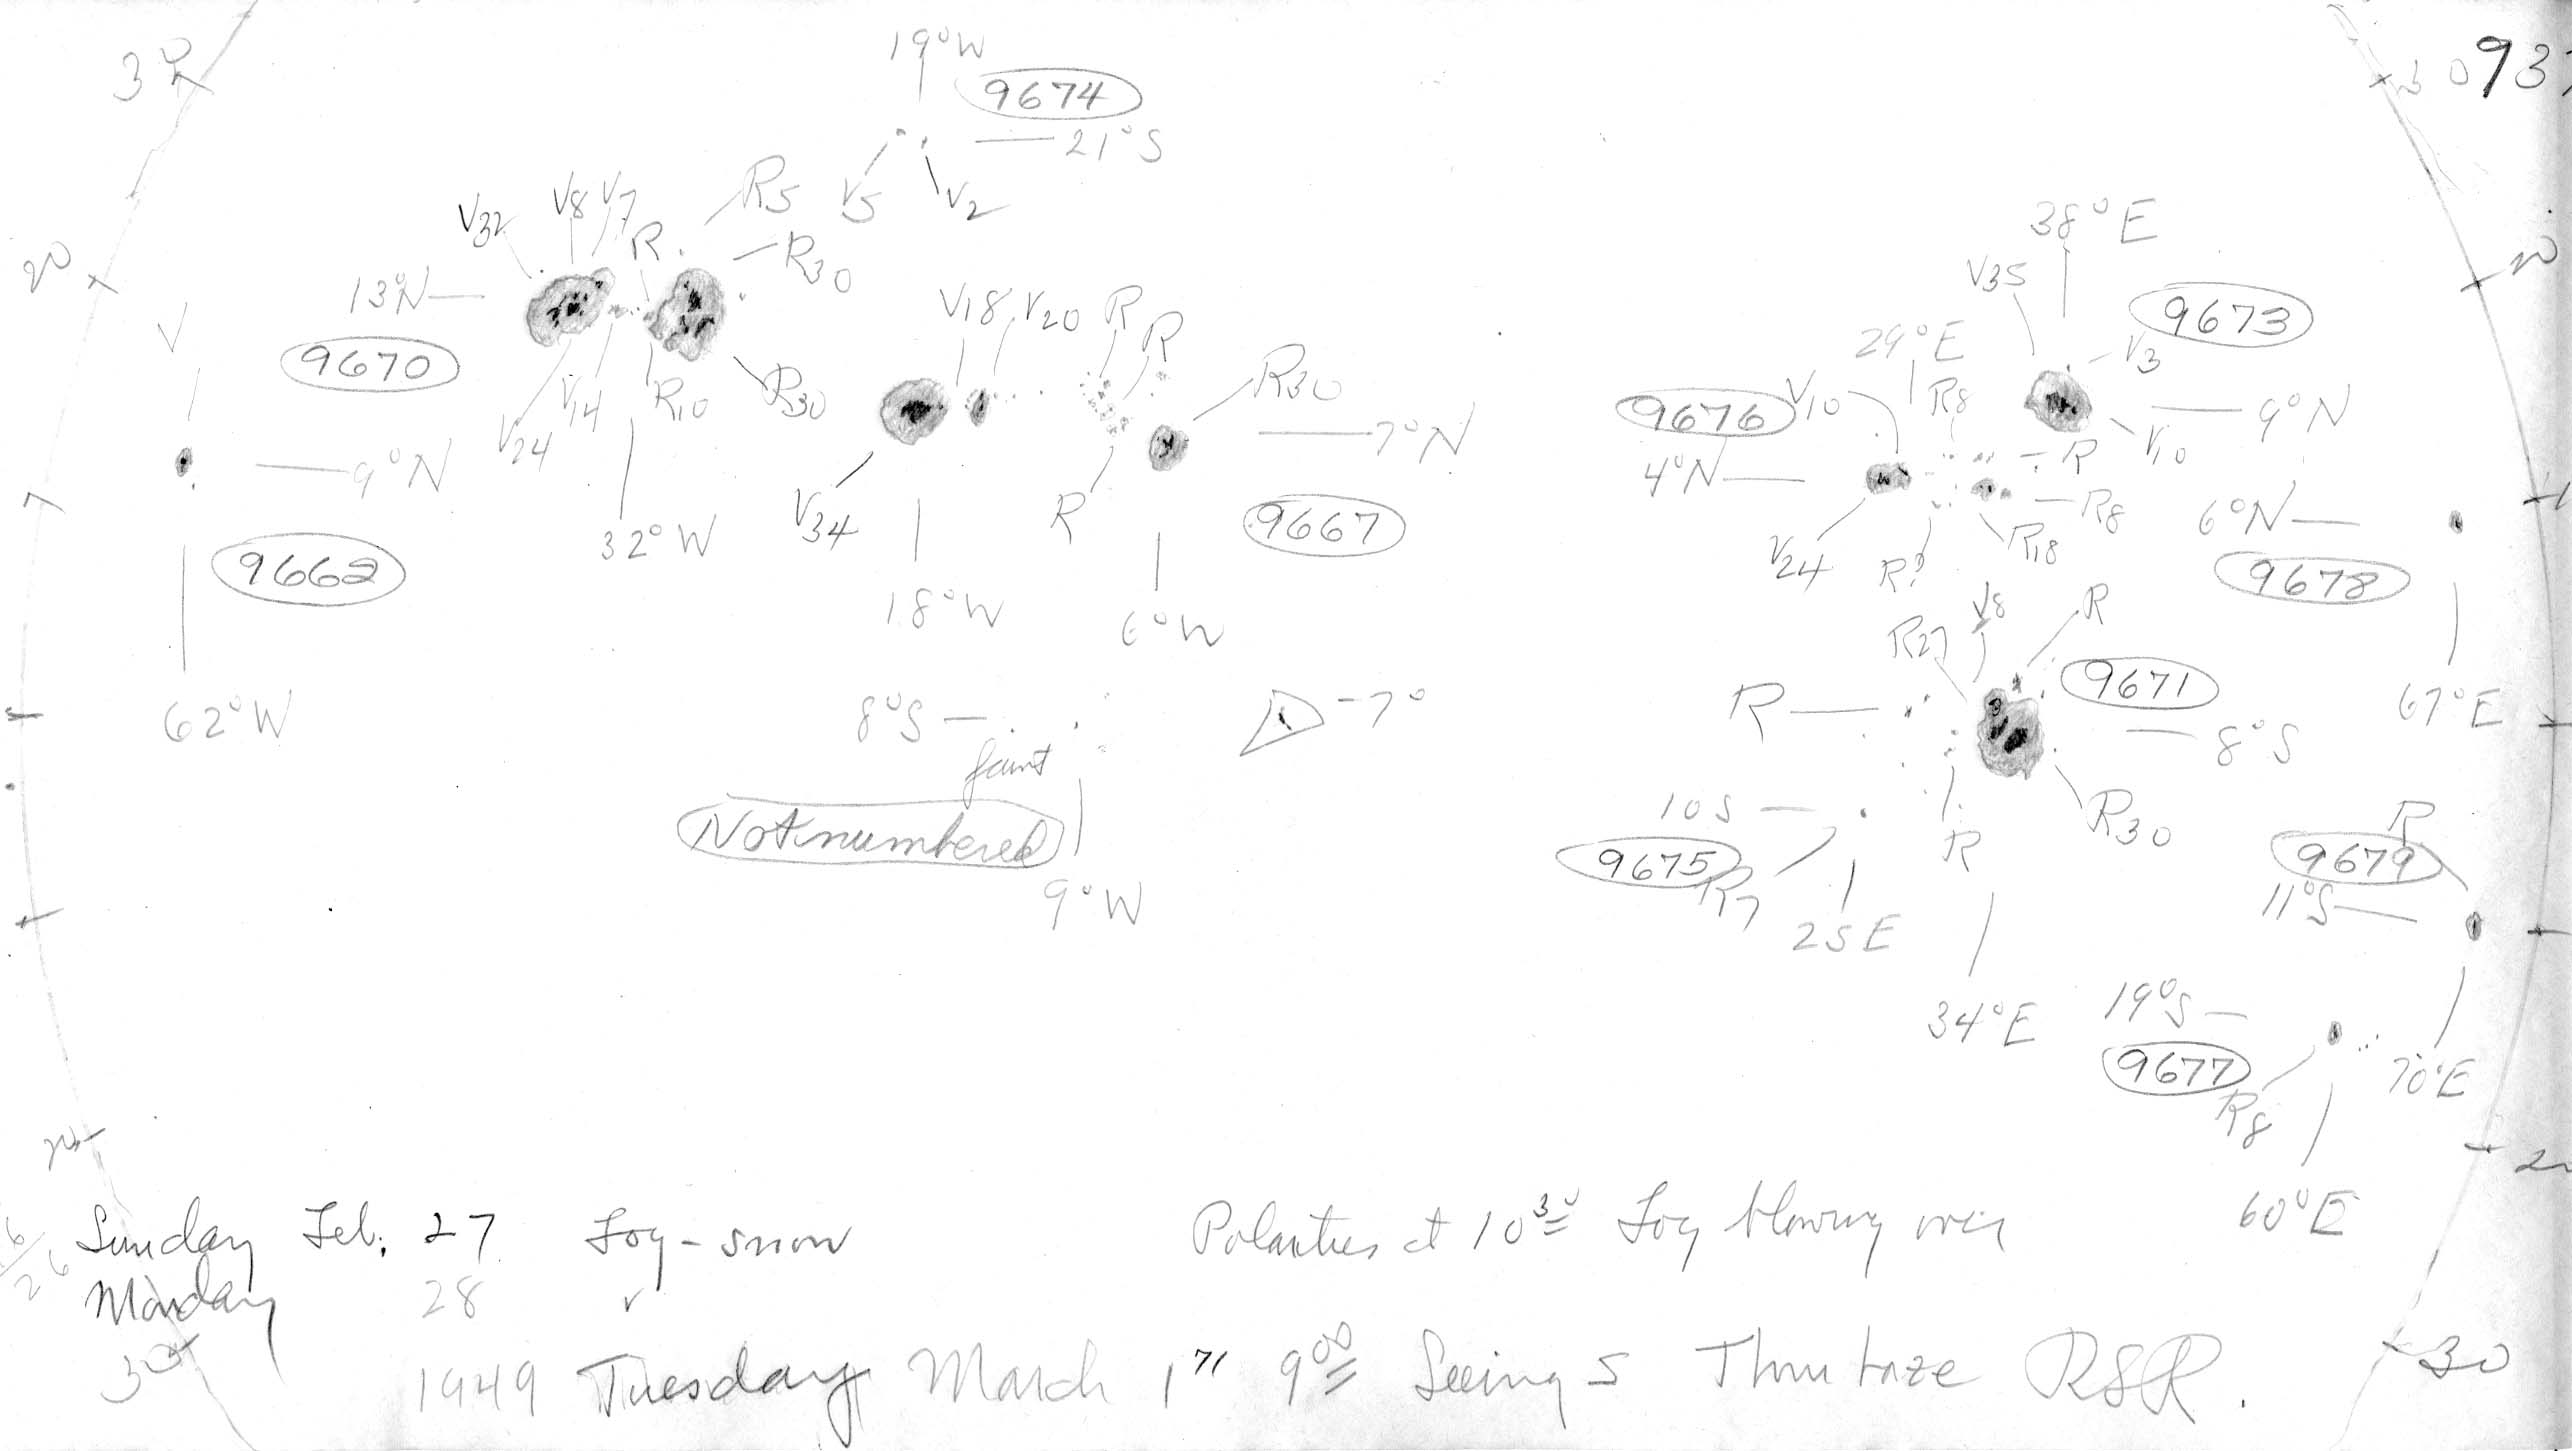 30
19°W
9674
21°S
V5
V2
30
937
20
V32
V8
V7
R
R5
R30
13°N
9670
V24
V14
R10
R30
32°W
V
9°N
9662
62°W
V18
V20
R
R
R30
7°N
V34
R
9667
18°W
6°W
8°S
faint
Not numbered
9°W
-7°
38°E
V35
9673
V3
9°N
V10
20
29°E
9676
V10
R8
4°N
R
R8
R18
V24
R?
6°N
9678
67°E
R27
V8
R
9671
R
8°S
R30
R
10S
9675
R7
25E
34°E
R
9679
11°S
70°E
19°S
9677
R8
60°E
20
20
Sunday Feb. 27 Fog - snow
Monday 28 "
Polarities at 10 30 Fog blowing over
30
1949 Tuesday March 1st 9 00 Seeing 5 Thru haze RSR.
30